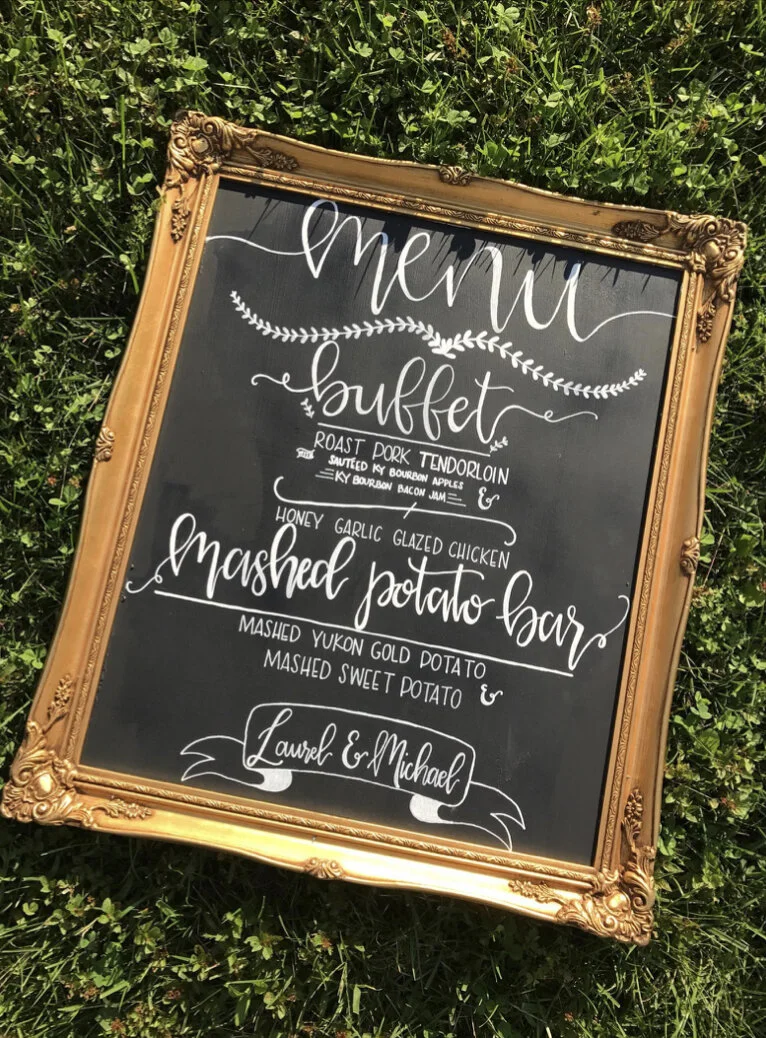 menu
buffet
ROAST PORK TENDORLOIN
SAUTÉED KY BOURBON APPLES
KY BOURBON BACON JAM &
HONEY GARLIC GLAZED CHICKEN
mashed potato bar
MASHED YUKON GOLD POTATO
MASHED SWEET POTATO &
Laurel & Michael